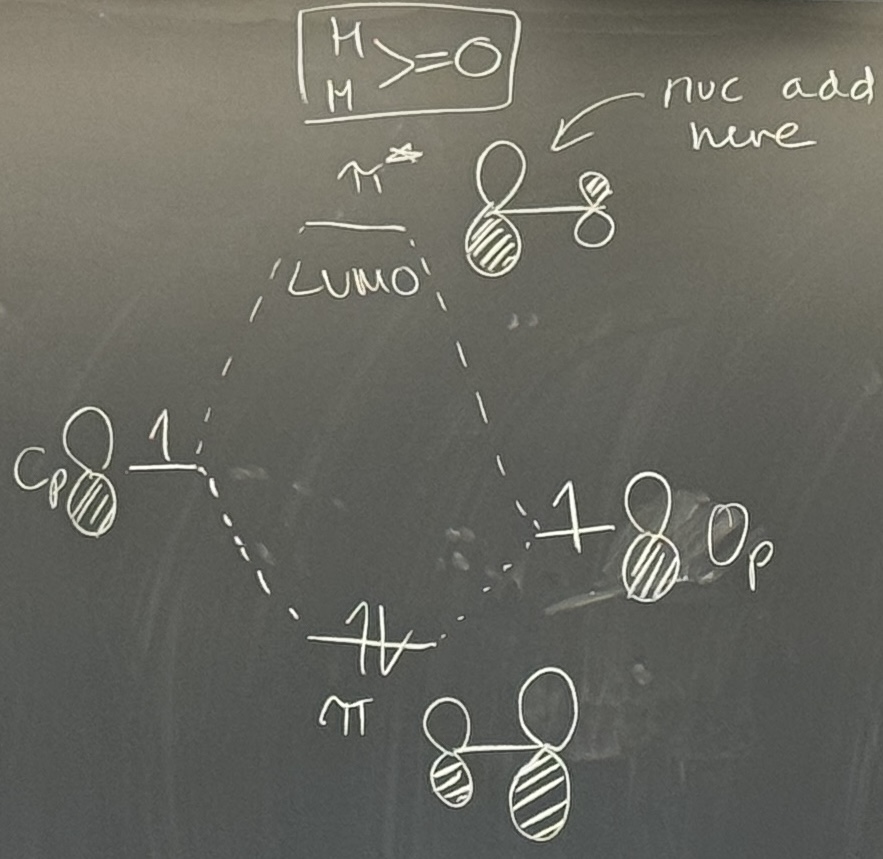 H
H >=O
nuc add
here
π*
LUMO
Cp 1
1 Op
1↓
π